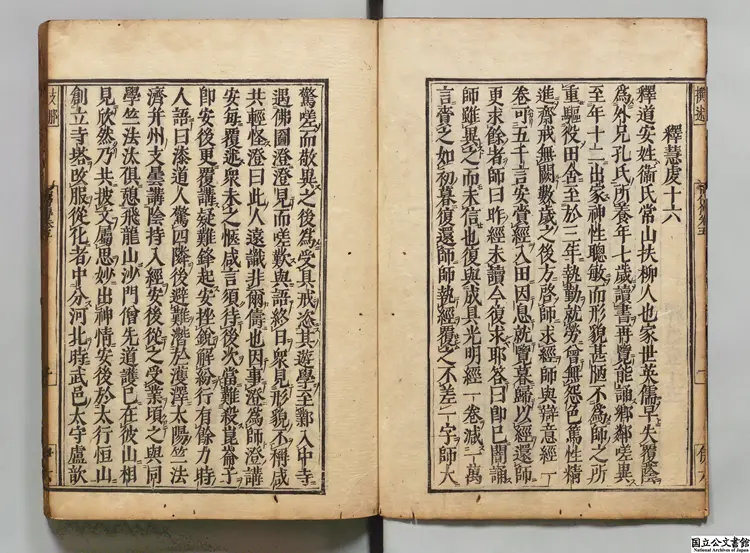 釋慧虔十六
釋道安姓衛氏常山扶柳人也家世英儒早失覆蔭
為外兄孔氏所養年七歲讀書再覽能誦鄉鄰嗟異
至年十二出家神性聰敏而形貌甚陋不為師之所
重驅役田舍至於三年執勤就勞曾無怨色篤性精
進齋戒無闕數歲之後方啓師求經師與辯意經一
卷可五千言安賫經入田因息就覽暮歸以經還師
更求餘者師曰昨經未讀今復求耶答曰即已闇誦
師雖異之而未信也復與成具光明經一卷減一萬
言賫之如初暮復還師師執經覆之不差一字師大
驚嗟而敬異之後為受具戒恣其遊學至鄴入中寺
遇佛圖澄澄見而嗟歎與語終日衆見形貌不稱咸
共輕怪澄曰此人遠識非爾儔也因事澄為師澄講
安每覆述衆未之愜咸言須待後次當難殺崑崙子
即安後更覆講疑難鋒起安挫銳解紛行有餘力時
人語曰漆道人驚四隣後避難潛於濩澤太陽竺法
濟并州支曇講陰持入經安後從之受業頃之與同
學竺法汰俱憩飛龍山沙門僧先道護已在彼山相
見欣然乃共披文屬思妙出神情安後於太行恒山
創立寺塔改服從化者中分河北時武邑太守盧歆
国立公文書館
National Archives of Japan